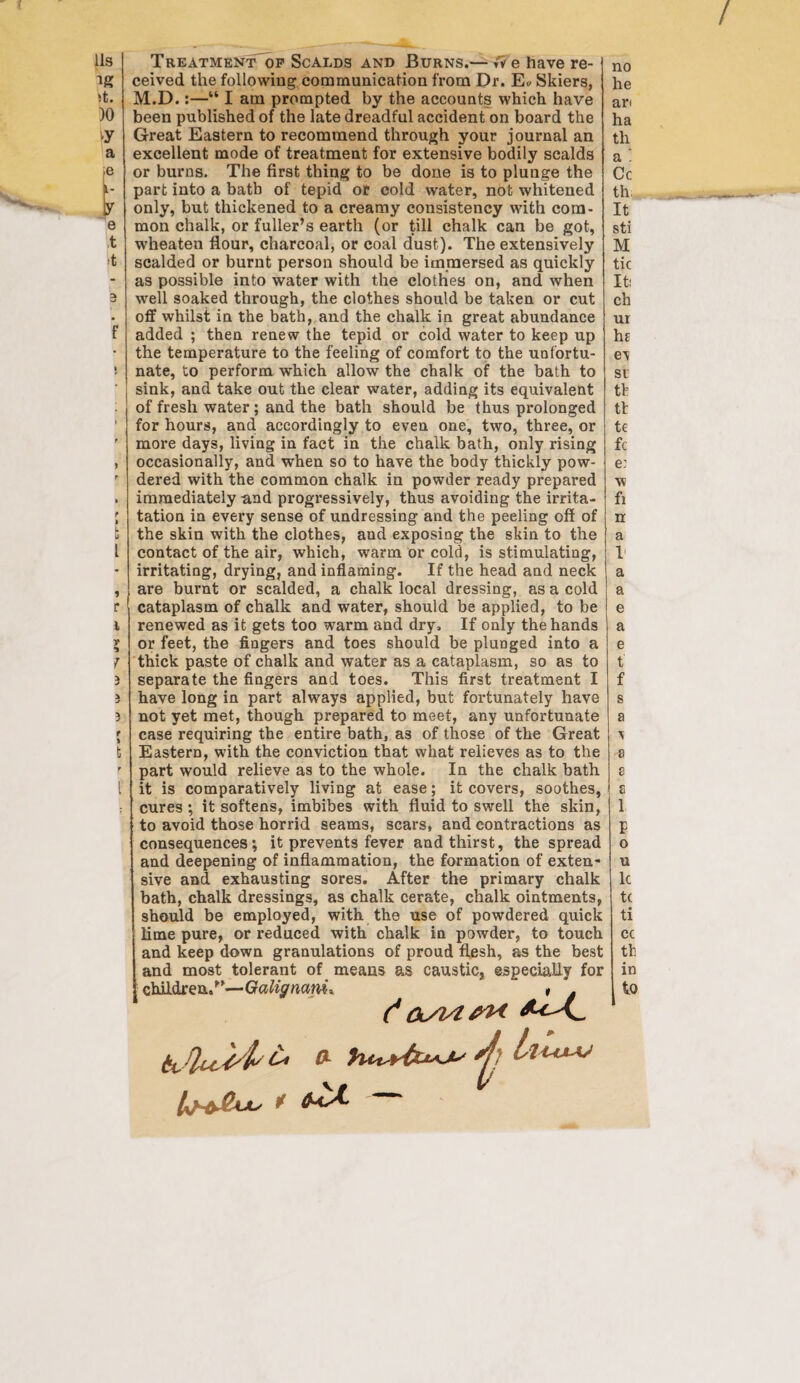 TREATMENT OF SCALDS AND BURNS.—We have re-
ceived the following communication from Dr. E. Skiers,
M.D. :—“ I am prompted by the accounts which have
been published of the late dreadful accident on board the
Great Eastern to recommend through your journal an
excellent mode of treatment for extensive bodily scalds
or burns. The first thing to be done is to plunge the
part into a bath of tepid or cold water, not whitened
only, but thickened to a creamy consistency with com-
mon chalk, or fuller’s earth (or till chalk can be got,
wheaten flour, charcoal, or coal dust). The extensively
scalded or burnt person should be immersed as quickly
as possible into water with the clothes on, and when
well soaked through, the clothes should be taken or cut
off whilst in the bath, and the chalk in great abundance
added ; then renew the tepid or cold water to keep up
the temperature to the feeling of comfort to the unfortu-
nate, to perform which allow the chalk of the bath to
sink, and take out the clear water, adding its equivalent
of fresh water ; and the bath should be thus prolonged
for hours, and accordingly to even one, two, three, or
more days, living in fact in the chalk bath, only rising
occasionally, and when so to have the body thickly pow-
dered with the common chalk in powder ready prepared
immediately and progressively, thus avoiding the irrita-
tation in every sense of undressing and the peeling off of
the skin with the clothes, and exposing the skin to the
contact of the air, which, warm or cold, is stimulating,
irritating, drying, and inflaming. If the head and neck
are burnt or scalded, a chalk local dressing, as a cold
cataplasm of chalk and water, should be applied, to be
renewed as it gets too warm and dry. If only the hands
or feet, the fingers and toes should be plunged into a
thick paste of chalk and water as a cataplasm, so as to
separate the fingers and toes. This first treatment I
have long in part always applied, but fortunately have
not yet met, though prepared to meet, any unfortunate
case requiring the entire bath, as of those of the Great
Eastern, with the conviction that what relieves as to the
part would relieve as to the whole. In the chalk bath
it is comparatively living at ease; it covers, soothes,
cures ; it softens, imbibes with fluid to swell the skin,
to avoid those horrid seams, scars, and contractions as
consequences ; it prevents fever and thirst, the spread
and deepening of inflammation, the formation of exten-
sive and exhausting sores. After the primary chalk
bath, chalk dressings, as chalk cerate, chalk ointments,
should be employed, with the use of powdered quick
lime pure, or reduced with chalk in powder, to touch
and keep down granulations of proud flesh, as the best
and most tolerant of means as caustic, especially for
children.”—Galignani.
Carron oil
which is a mixture of Lime
water & oil —